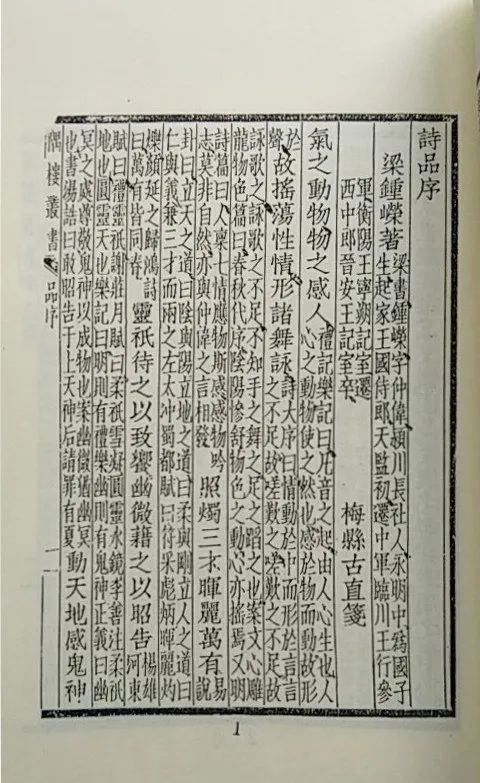 詩品序
梁鍾嶸著
梁書鍾嶸字仲偉潁川長社人永明中爲國子
生起家王國侍郎天監初遷中軍臨川王行參
軍衡陽王寧朔記室遷
西中郎晉安王記室卒
梅縣古直箋
氣之動物物之感人
禮記樂記曰凡音之起由人心生也人
心之動物使之然也感於物而動故形
於
聲
故搖蕩性情形諸舞詠
詩大序曰情動於中而形於言言
之不足故嗟歎之嗟歎之不足故
詠歌之詠歌之不足不知手之舞之足之蹈之也案文心雕
龍物色篇曰春秋代序陰陽慘舒物色之動心亦搖焉又明
詩篇曰人稟七情應物斯感感物吟
志莫非自然亦與仲偉之言相發
照燭三才暉麗萬有
易
說
卦曰立天之道曰陰與陽立地之道曰柔與剛立人之道曰
仁與義兼三才而兩之左太冲蜀都賦曰符采彪炳暉麗灼
爍顔延之歸鴻詩
曰萬有皆同春
靈祇待之以致饗幽微藉之以昭告
楊雄
河東
賦曰禮靈祇謝莊月賦曰柔祇雪凝圓靈水鏡李善注柔祇
地也圓靈天也樂記曰明則有禮樂幽則有鬼神正義曰幽
冥之處尊敬鬼神以成物也案幽微猶幽冥
也書湯誥曰敢昭告于上天神后請罪有夏
動天地感鬼神
樓叢書
品序
一
1